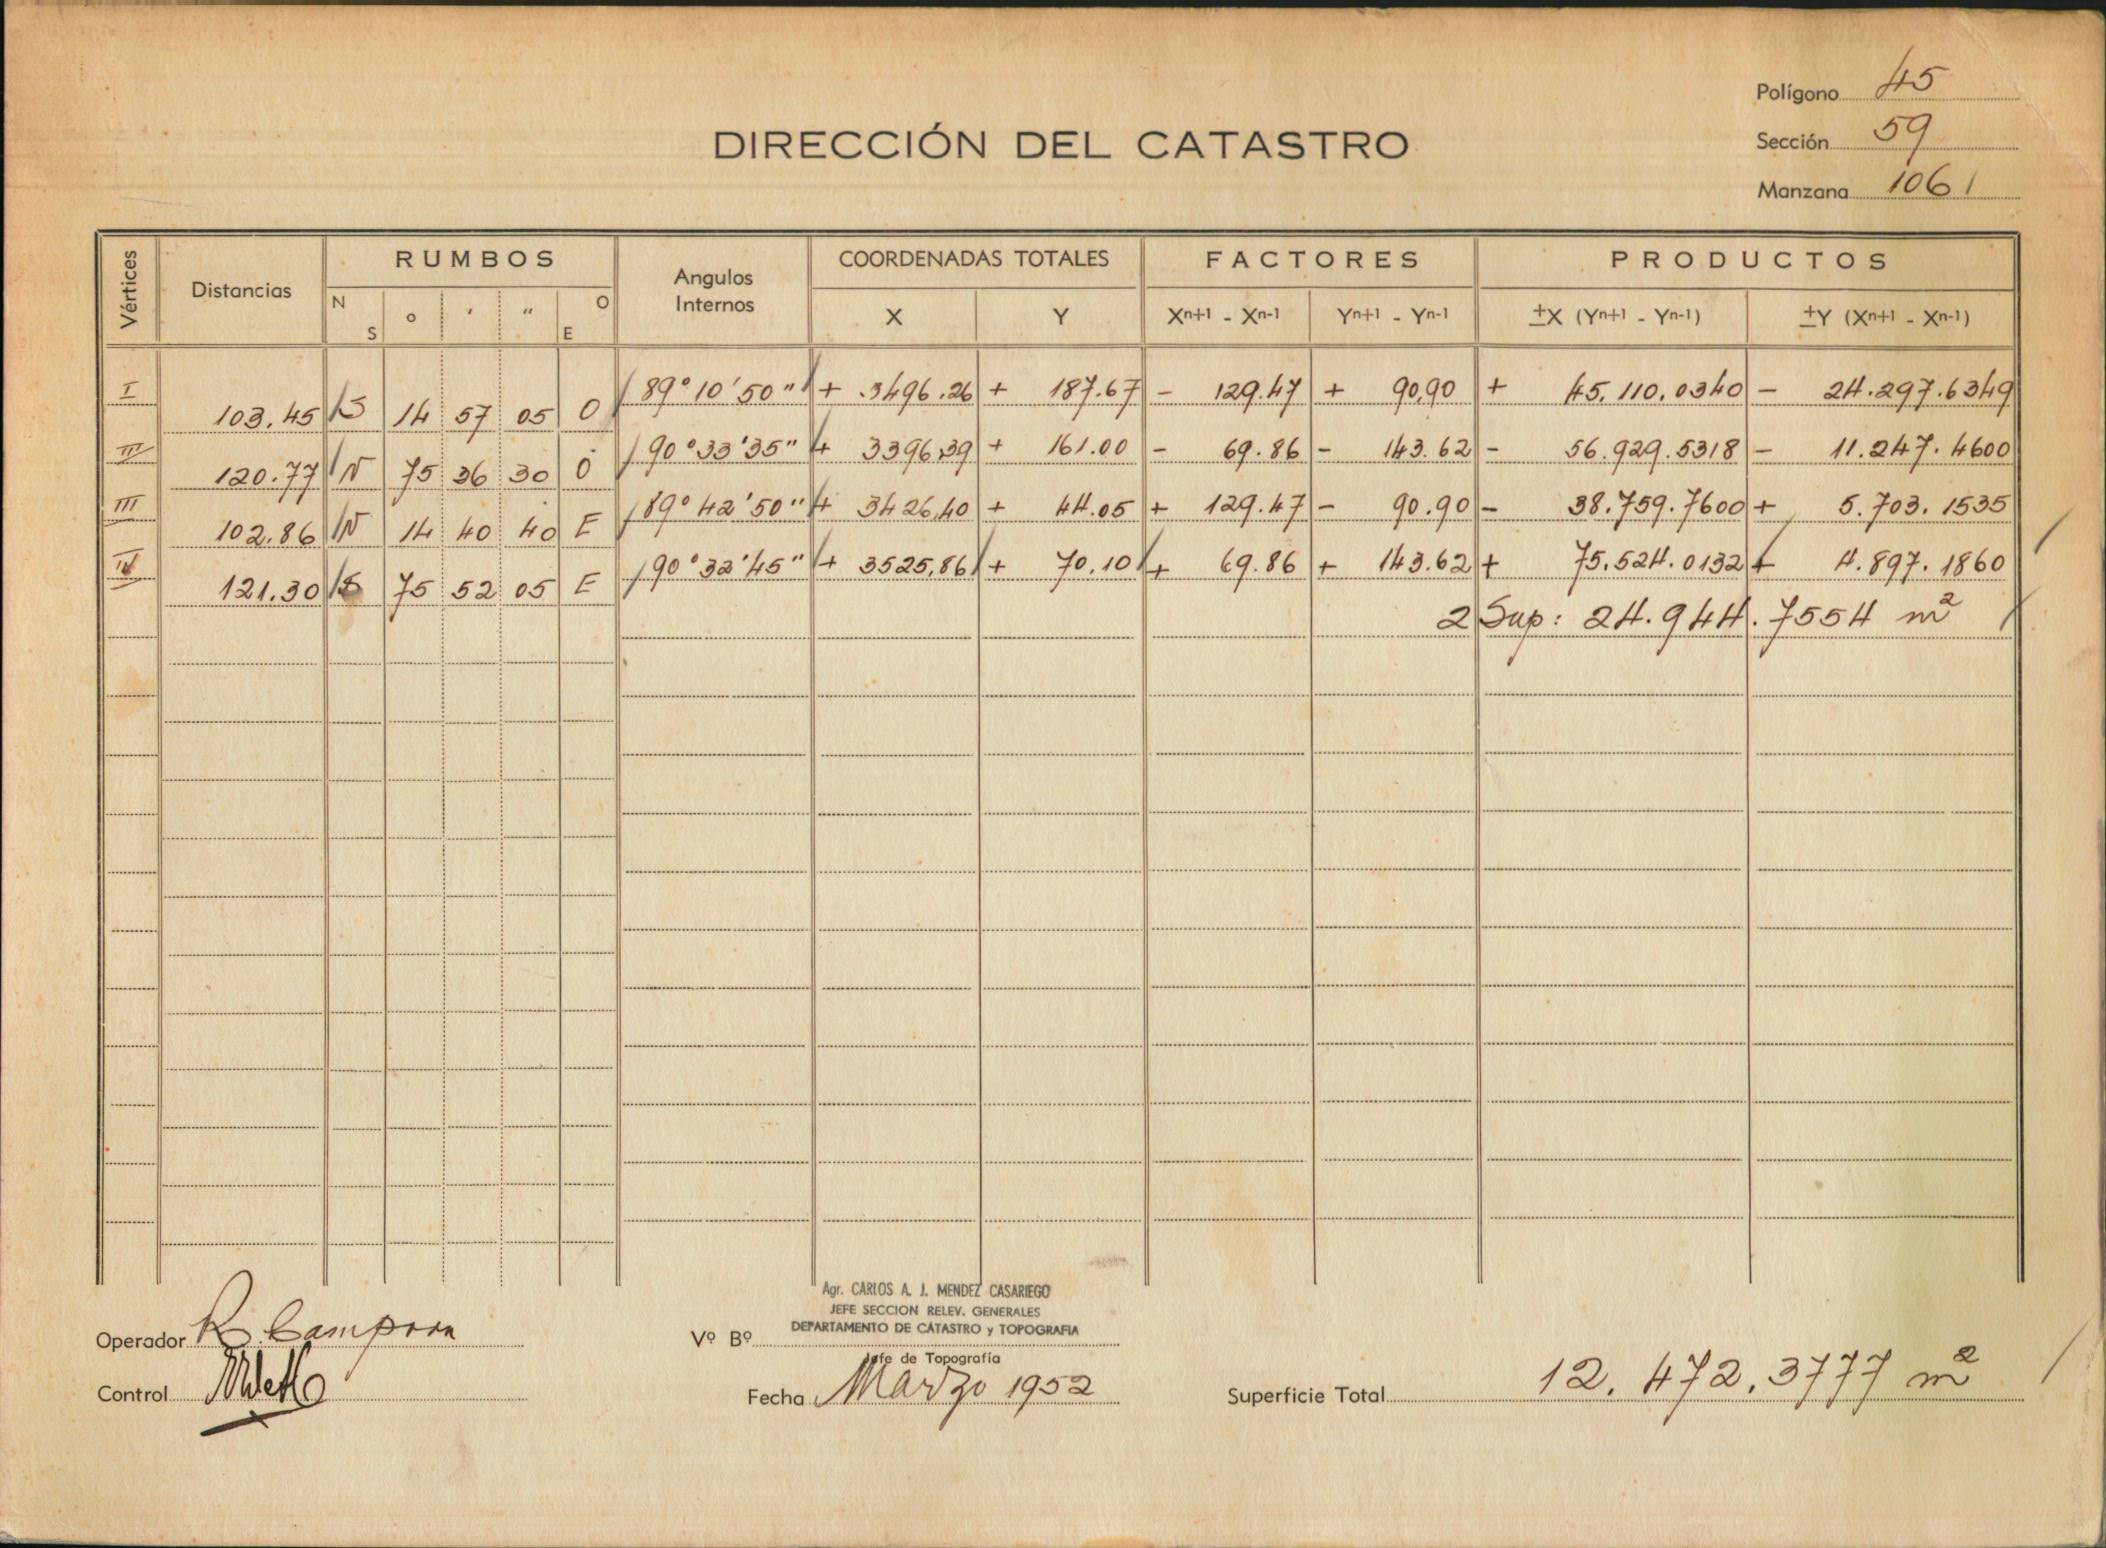 Polígono 45
DIRECCIÓN DEL CATASTRO
Sección 59
Manzana 1061
Vértices Distancias RUMBOS Angulos Internos COORDENADAS TOTALES FACTORES PRODUCTOS
N S ° ′ ″ O E X Y Xn+1 - Xn-1 Yn+1 - Yn-1 ±X (Yn+1 - Yn-1) ±Y (Xn+1 - Xn-1)
I 89° 10' 50" + 3496.26 + 187.67 - 129.47 + 90,90 + 45.110.0340 - 24.297.6349
103.45 S 14 57 05 O
III 90° 33' 35" + 3396,39 + 161.00 - 69.86 - 143.62 - 56.929.5318 - 11.247.4600
120.77 N 75 36 30 O
III 89° 42' 50" + 3426,40 + 44.05 + 129.47 - 90.90 - 38.759.7600 + 5.703.1535
102.86 N 14 40 40 E
IV 90° 32' 45" + 3525,86 + 70.10 + 69.86 + 143.62 + 75.524.0132 + 4.897.1860
121.30 S 75 52 05 E
2 Sup: 24.944.7554 m²
Agr. CARLOS A. J. MENDEZ CASARIEGO
JEFE SECCION RELEV. GENERALES
DEPARTAMENTO DE CATASTRO y TOPOGRAFIA
Operador
Vº Bº
Jefe de Topografía
Control
Fecha Marzo 1952
Superficie Total 12.472.3777 m²